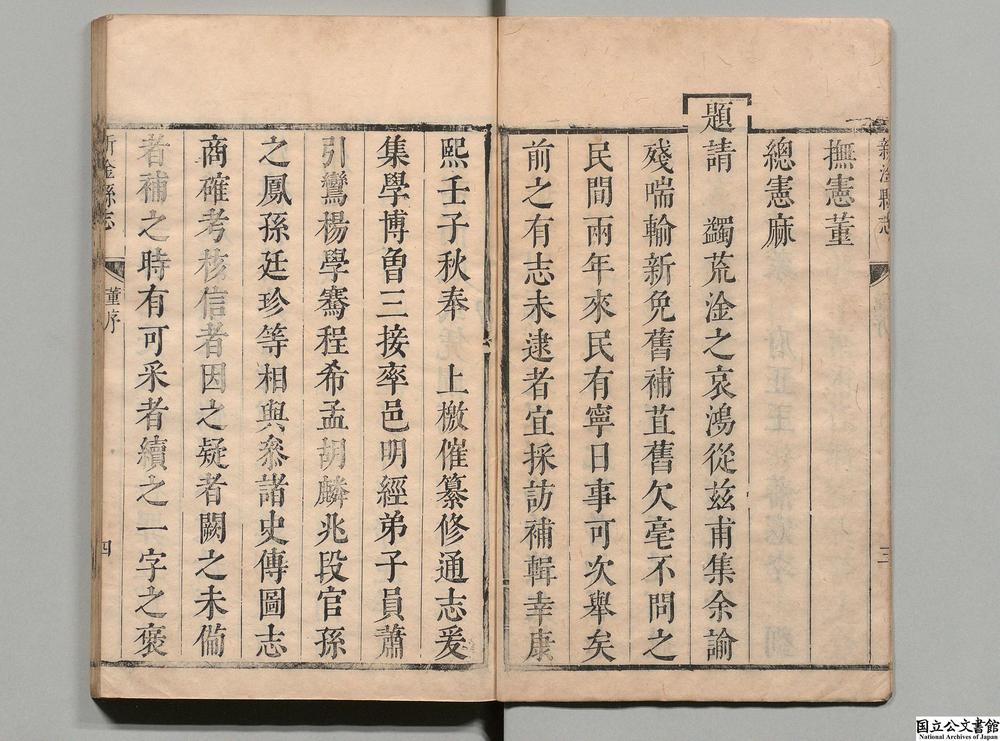 新淦縣志
三
撫憲董
總憲麻
題請　蠲荒淦之哀鴻從茲甫集余諭
殘喘輸新免舊補苴舊欠毫不問之
民間兩年來民有寧日事可次舉矣
前之有志未逮者宜採訪補輯幸康
熙壬子秋奉　上檄催纂修通志爰
集學博魯三接率邑明經弟子員蕭
引鸞楊學騫程希孟胡麟兆段官孫
之鳳孫廷珍等相與叅諸史傳圖志
商確考核信者因之疑者闕之未備
者補之時有可采者續之一字之褒
新淦縣志
董序
四
国立公文書館
National Archives of Japan